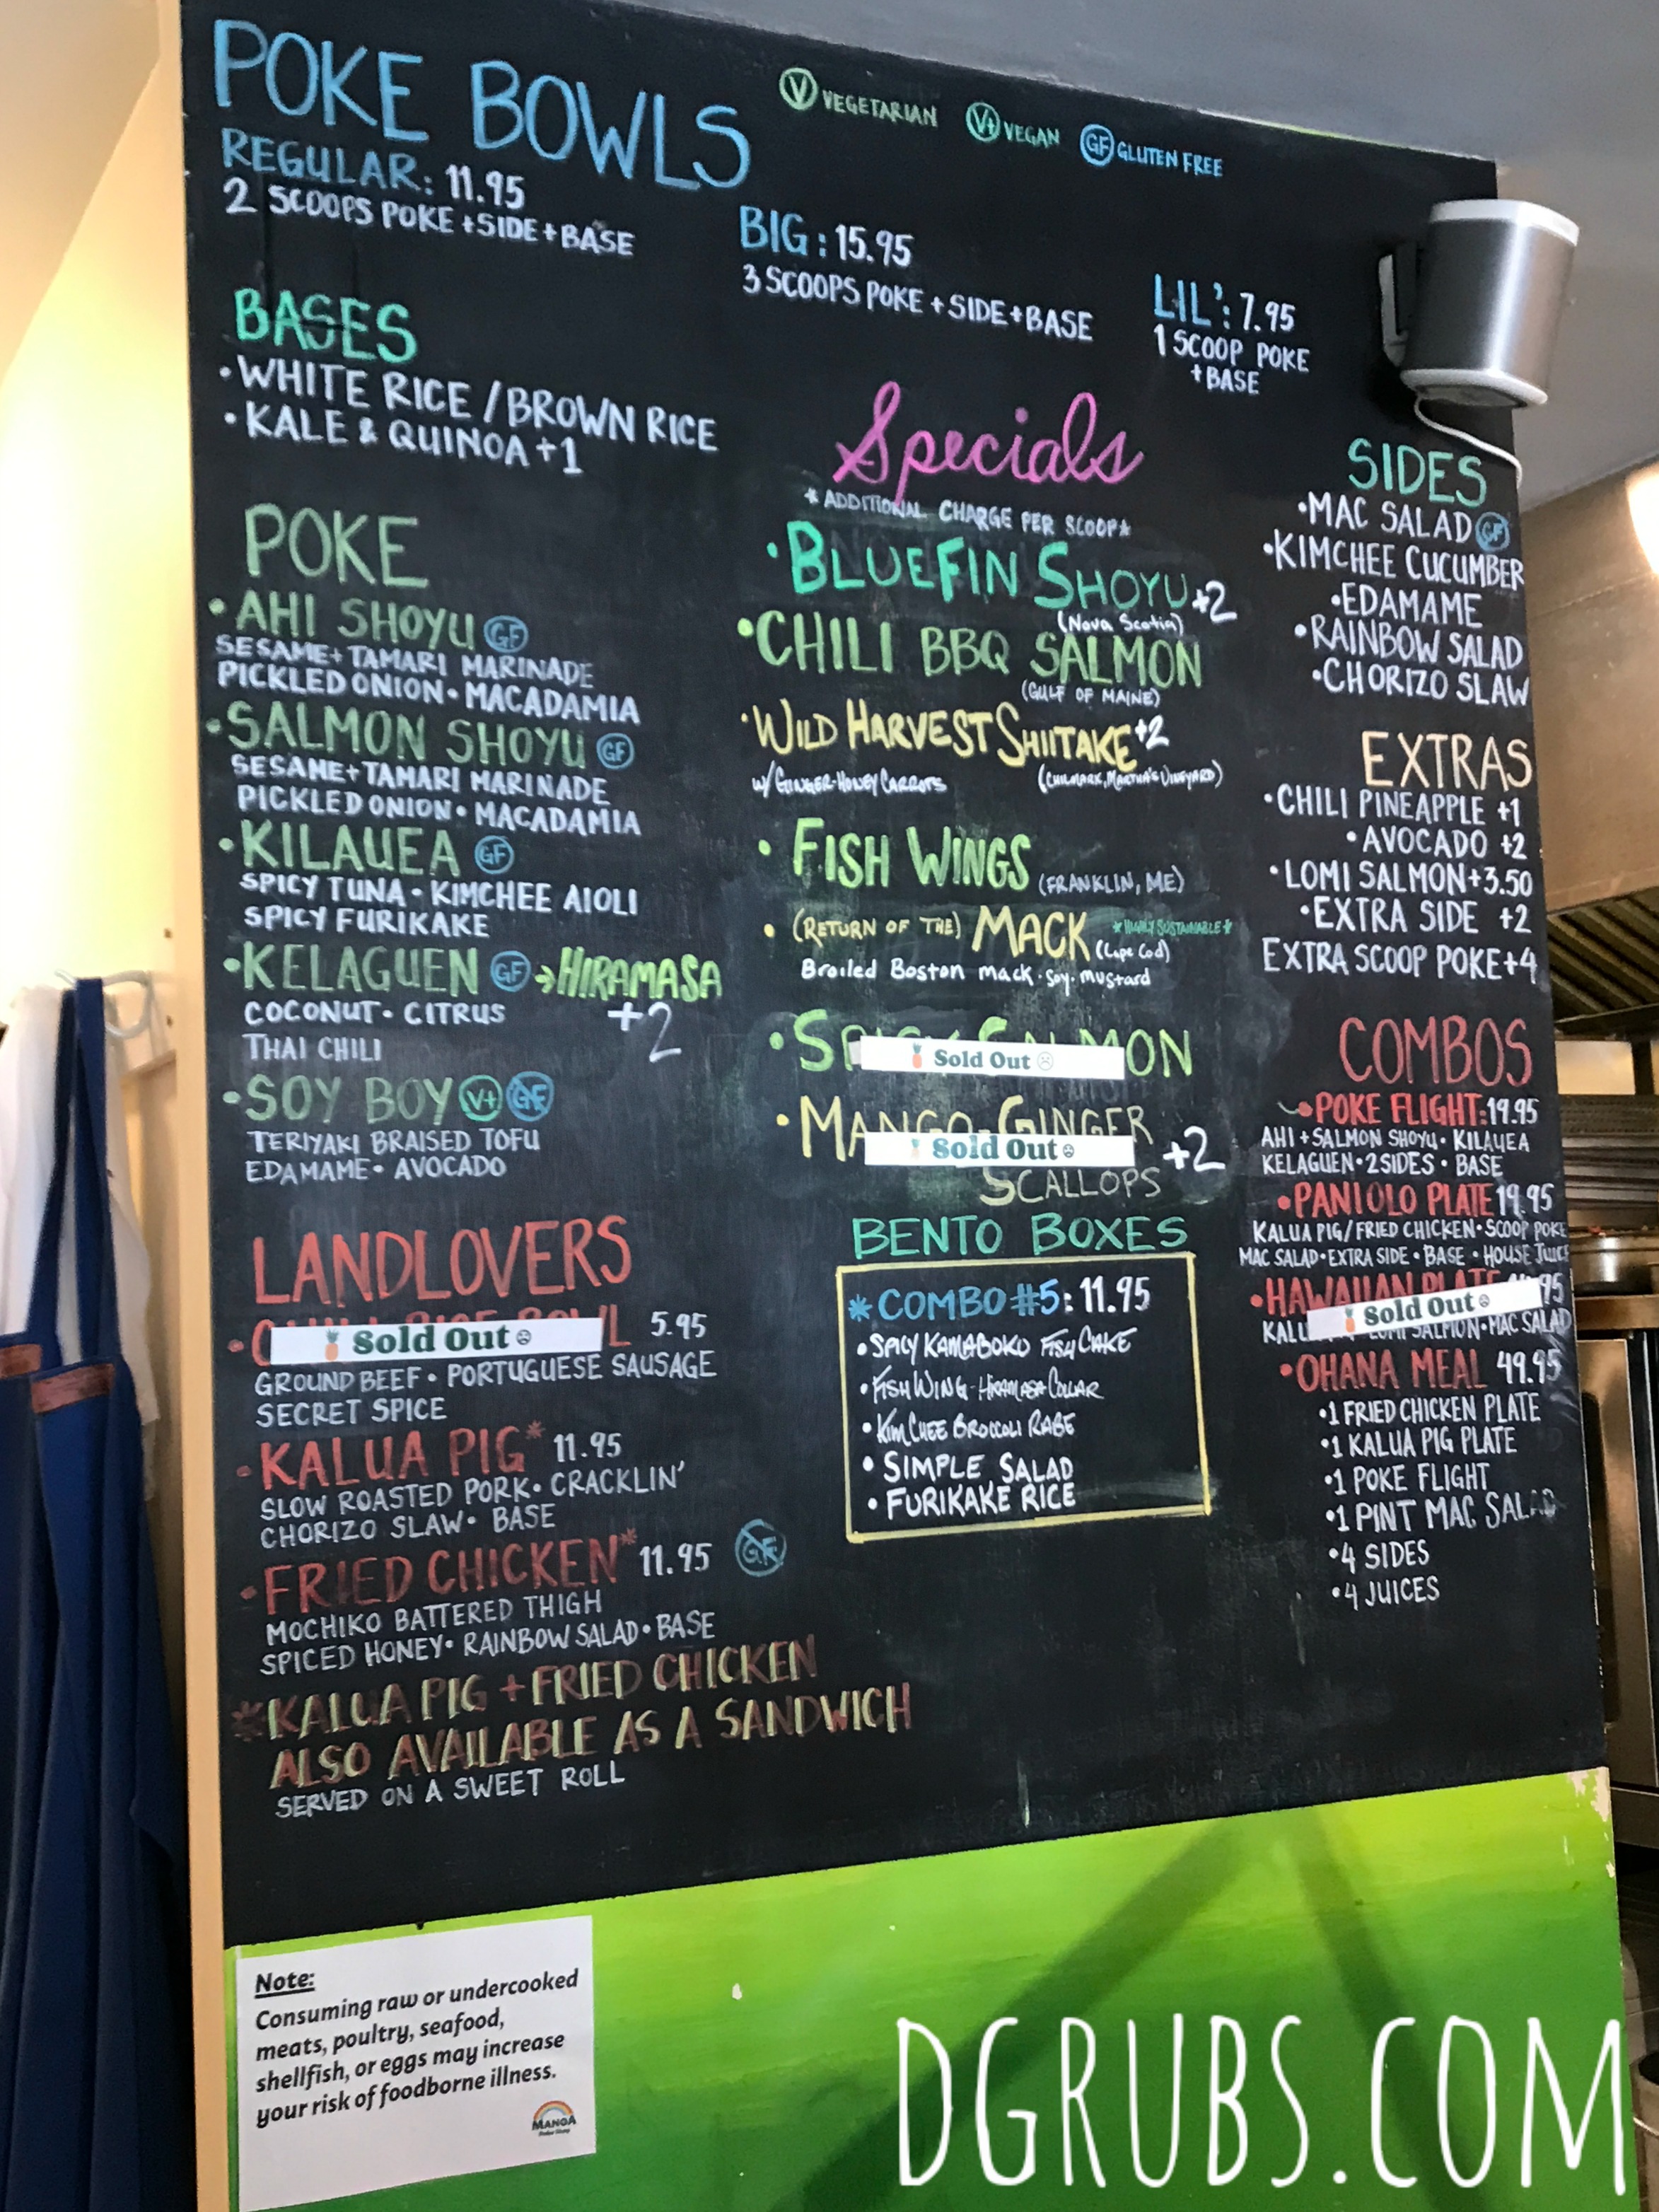 POKE BOWLS
V VEGETARIAN V+ VEGAN GF GLUTEN FREE
REGULAR: 11.95
2 SCOOPS POKE + SIDE + BASE
BIG: 15.95
3 SCOOPS POKE + SIDE + BASE
LIL': 7.95
1 SCOOP POKE
+ BASE
BASES
•WHITE RICE / BROWN RICE
•KALE & QUINOA +1
POKE
•AHI SHOYU GF
SESAME + TAMARI MARINADE
PICKLED ONION • MACADAMIA
•SALMON SHOYU GF
SESAME + TAMARI MARINADE
PICKLED ONION • MACADAMIA
•KILAUEA GF
SPICY TUNA • KIMCHEE AIOLI
SPICY FURIKAKE
•KELAGUEN GF → HIRAMASA
+2
COCONUT • CITRUS
THAI CHILI
•SOY BOY V+ GF
TERIYAKI BRAISED TOFU
EDAMAME • AVOCADO
LANDLOVERS
Sold Out
5.95
GROUND BEEF • PORTUGUESE SAUSAGE
SECRET SPICE
•KALUA PIG* 11.95
SLOW ROASTED PORK • CRACKLIN'
CHORIZO SLAW • BASE
•FRIED CHICKEN* 11.95 GF
MOCHIKO BATTERED THIGH
SPICED HONEY • RAINBOW SALAD • BASE
*KALUA PIG + FRIED CHICKEN
ALSO AVAILABLE AS A SANDWICH
SERVED ON A SWEET ROLL
Specials
*ADDITIONAL CHARGE PER SCOOP*
•BLUEFIN SHOYU +2
(Nova Scotia)
•CHILI BBQ SALMON
(GULF OF MAINE)
•WILD HARVEST SHIITAKE +2
w/ GINGER-HONEY CARROTS (CHILMARK, MARTHA'S VINEYARD)
•FISH WINGS (FRANKLIN, ME)
•(RETURN OF THE) MACK *HIGHLY SUSTAINABLE*
(Cape Cod)
Broiled Boston mack • soy • mustard
•SPICY SALMON
Sold Out
•MANGO-GINGER +2
Sold Out
SCALLOPS
BENTO BOXES
*COMBO #5: 11.95
•SPICY KAMABOKO FISH CAKE
•FISH WING - HIRAMASA COLLAR
•KIM CHEE BROCCOLI RABE
•SIMPLE SALAD
•FURIKAKE RICE
SIDES
•MAC SALAD GF
•KIMCHEE CUCUMBER
•EDAMAME
•RAINBOW SALAD
•CHORIZO SLAW
EXTRAS
•CHILI PINEAPPLE +1
•AVOCADO +2
•LOMI SALMON +3.50
•EXTRA SIDE +2
EXTRA SCOOP POKE +4
COMBOS
•POKE FLIGHT: 19.95
AHI + SALMON SHOYU • KILAUEA
KELAGUEN • 2 SIDES • BASE
•PANIOLO PLATE 19.95
KALUA PIG / FRIED CHICKEN • SCOOP POKE
MAC SALAD • EXTRA SIDE • BASE • HOUSE JUICE
•HAWAIIAN PLATE
Sold Out
LOMI SALMON • MAC SALAD
•OHANA MEAL 49.95
•1 FRIED CHICKEN PLATE
•1 KALUA PIG PLATE
•1 POKE FLIGHT
•1 PINT MAC SALAD
•4 SIDES
•4 JUICES
Note:
Consuming raw or undercooked
meats, poultry, seafood,
shellfish, or eggs may increase
your risk of foodborne illness.
MANOA
DGRUBS.COM